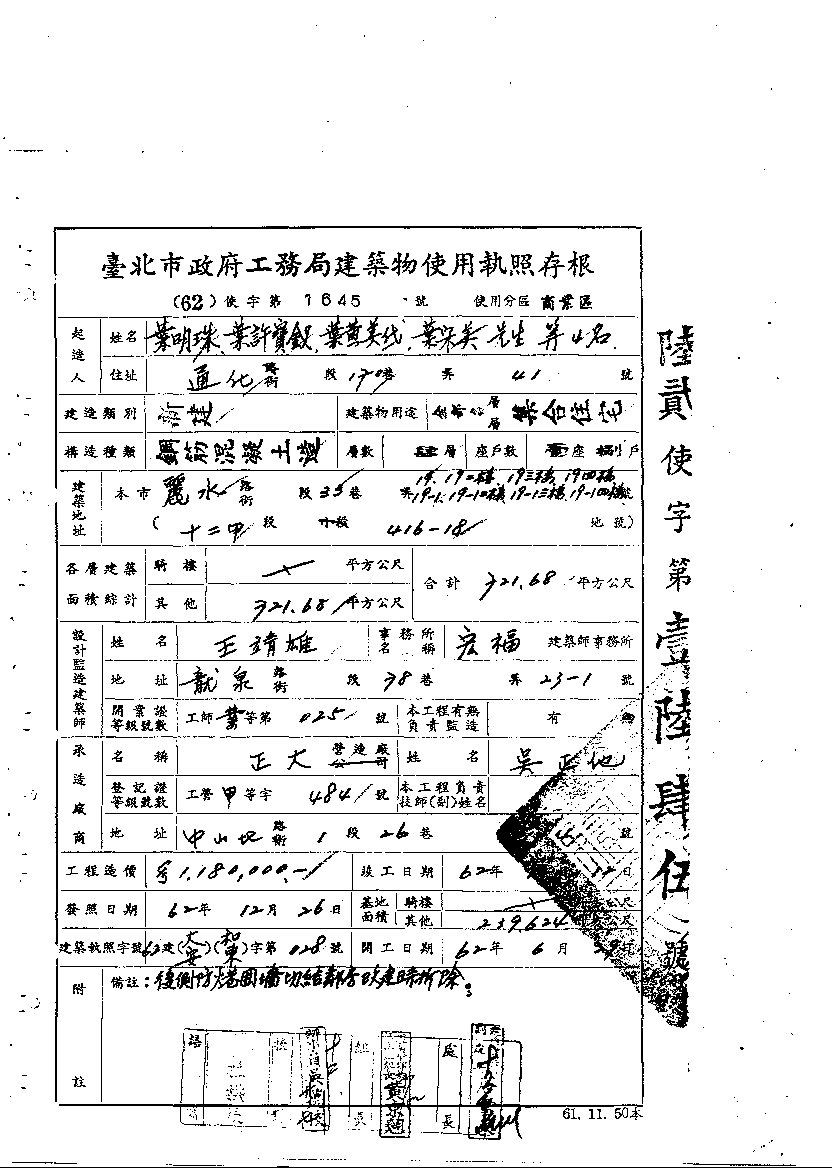 臺北市政府工務局建築物使用執照存根
(62)使字第 1645 號 使用分區 商業區
起造人 姓名 葉明珠、葉許寶釵、葉黃美代、葉朵美 先生 等4名
住址 通化路街 段 170巷 弄 41 號
建造類別 新建 建築物用途 層層 集合住宅
構造種類 鋼筋混凝土造 層數 肆層 座戶數 壹座 捌戶
19, 19二樓, 19三樓, 19四樓
建築地址 本市 麗水路街 段 35巷 弄 19-1, 19-1二樓, 19-1三樓, 19-1四樓 號
( 十二甲 段 小段 416-18 地號)
各層建築面積綜計 騎樓 平方公尺 合計 321.68 平方公尺
其他 321.68 平方公尺
設計監造建築師 姓名 王靖雄 事務所名稱 宏福 建築師事務所
地址 龍泉路街 段 38巷 弄 23-1 號
開業證等級號數 工師 等第 025 號 本工程有無負責監造 有
承造廠商 名稱 正大 營造廠公司 姓名 吳正地
登記證等級號數 工營甲等字 484 號 本工程負責技師(副)姓名
地址 中山北路街 1段 26巷 號
工程造價 1,180,000.- 竣工日期 62年 12日
發照日期 62年 12月 26日 基地面積 騎樓 公尺
其他 239.624 公尺
建築執照字號 62建(大安)(和東)字第 028 號 開工日期 62年 6月 29日
附註 備註：後側防火巷圍牆切結鄰房改建時拆除。
組長 處長
61. 11. 50本
陸貳使字第壹陸肆伍號